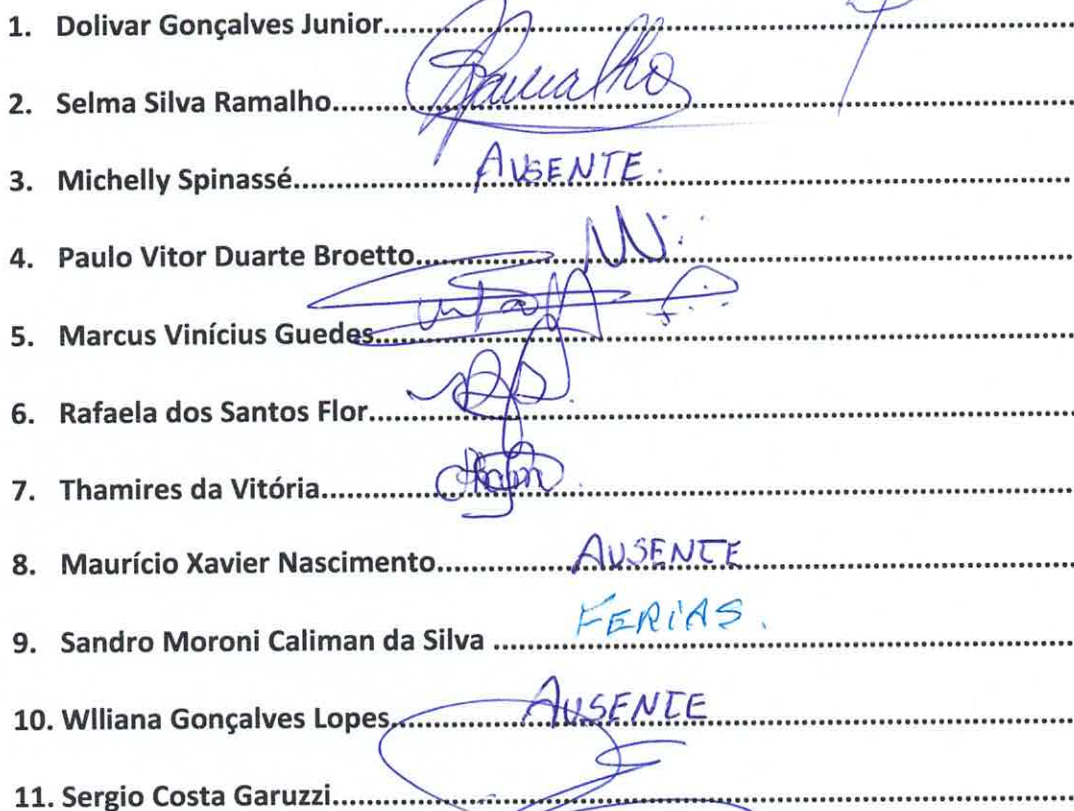 1. Dolivar Gonçalves Junior
2. Selma Silva Ramalho Ramalho
3. Michelly Spinassé AUSENTE.
4. Paulo Vitor Duarte Broetto
5. Marcus Vinícius Guedes
6. Rafaela dos Santos Flor
7. Thamires da Vitória
8. Maurício Xavier Nascimento AUSENTE
9. Sandro Moroni Caliman da Silva FERIAS.
10. Wlliana Gonçalves Lopes AUSENTE
11. Sergio Costa Garuzzi